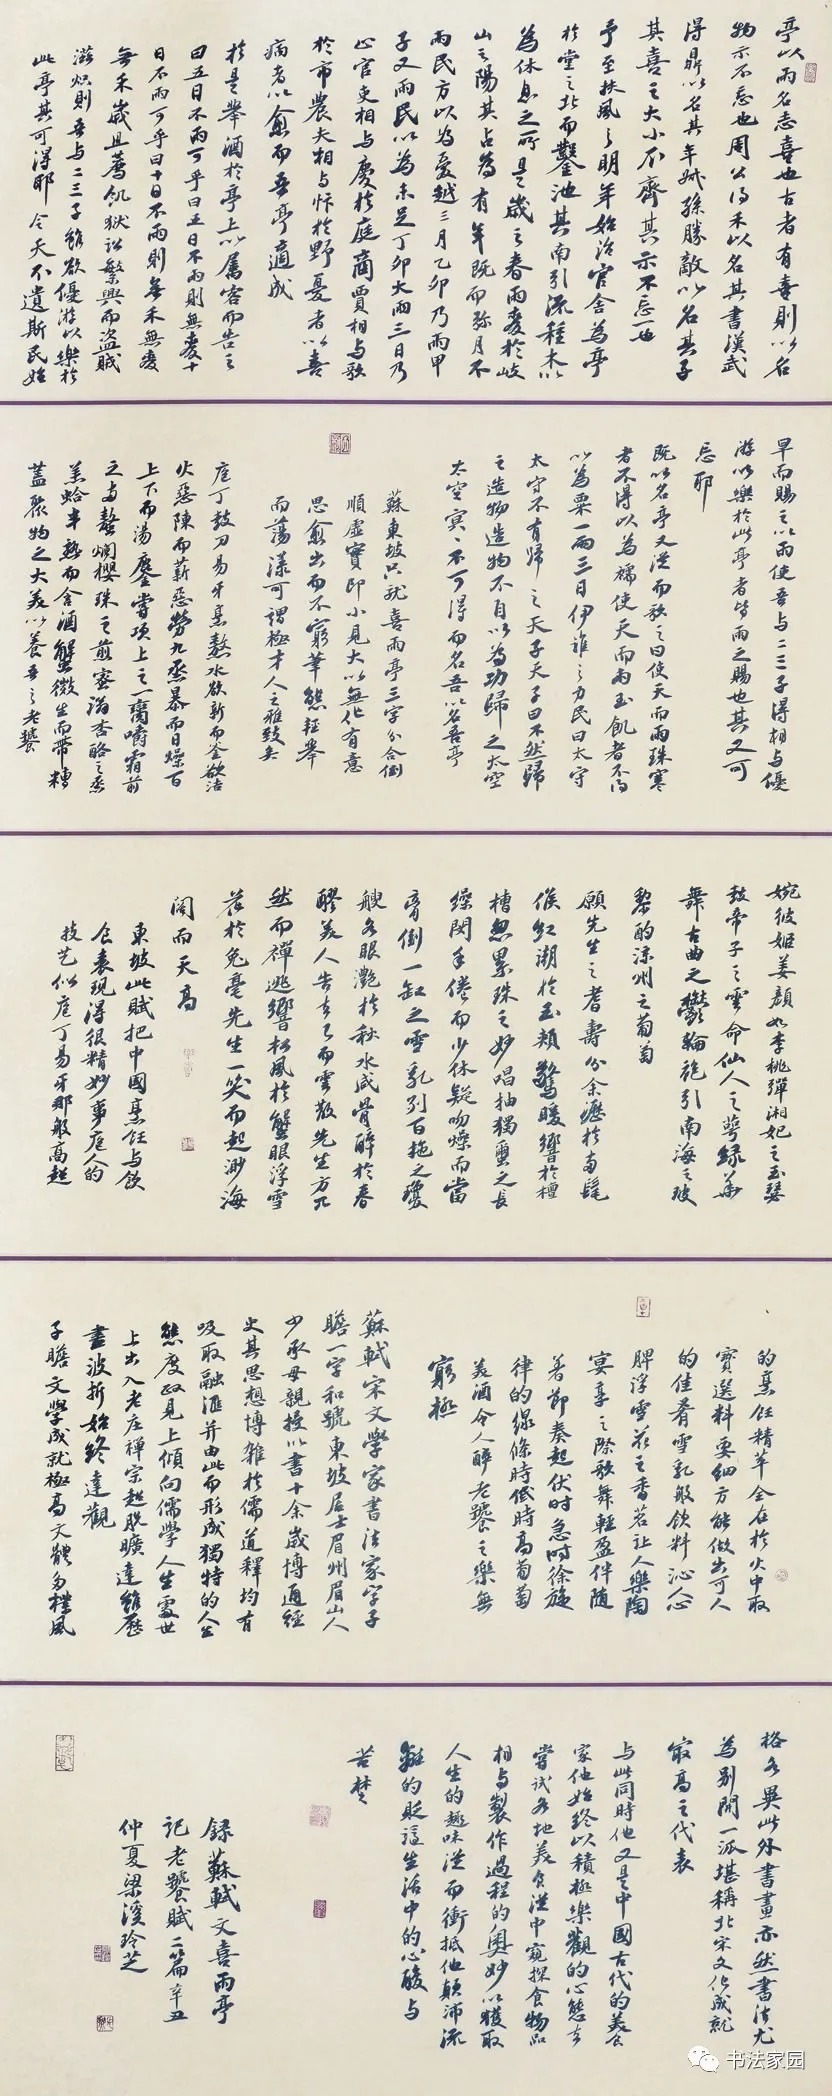 亭以雨名志喜也古者有喜則以名
物示不忘也周公得禾以名其書漢武
得鼎以名其年叔孫勝敵以名其子
其喜之大小不齊其示不忘一也
予至扶風之明年始治官舍為亭
於堂之北而鑿池其南引流種木以
為休息之所是歲之春雨麥於岐
山之陽其占為有年既而彌月不
雨民方以為憂越三月乙卯乃雨甲
子又雨民以為未足丁卯大雨三日乃
止官吏相与慶於庭商賈相与歌
於市農夫相与忭於野憂者以喜
病者以愈而吾亭適成
於是舉酒於亭上以屬客而告之
曰五日不雨可乎曰五日不雨則無麥十
日不雨可乎曰十日不雨則無禾無麥
無禾歲且薦飢獄訟繁興而盜賊
滋熾則吾与二三子雖欲優游以樂於
此亭其可得耶今天不遺斯民始
旱而賜之以雨使吾与二三子得相与優
游以樂於此亭者皆雨之賜也其又可
忘耶
既以名亭又從而歌之曰使天而雨珠寒
者不得以為襦使天而雨玉飢者不得
以為粟一雨三日伊誰之力民曰太守
太守不有歸之天子天子曰不然歸
之造物造物不自以為功歸之太空
太空冥冥不可得而名吾以名吾亭
蘇東坡只就喜雨亭三字分合倒
順虛實即小見大以無化有意
思愈出而不窮筆態輕舉
而蕩漾可謂極才人之雅致矣
庖丁鼓刀易牙烹熬水欲新而釜欲潔
火惡陳而薪惡勞九蒸暴而日燥百
上下而湯鏖嘗項上之一臠嚼霜前
之兩螯爛櫻珠之煎蜜滃杏酪之蒸
羔蛤半熟而含酒蟹微生而帶糟
蓋聚物之夭美以養吾之老饕
婉彼姬姜顏如李桃彈湘妃之玉瑟
鼓帝子之雲命仙人之萼綠華
舞古曲之鬱輪袍引南海之玻
黎酌涼州之葡萄
願先生之耆壽分余瀝於兩髦
候紅潮於玉頰驚暖響於檀
槽忽累珠之妙唱抽獨繭之長
繰閔手倦而少休疑吻燥而當
膏倒一缸之雪乳列百柂之瓊
艘各眼灔於秋水咸骨醉於春
醪美人告去已而雲散先生方兀
然而禪逃響松風於蟹眼浮雪
花於兔毫先生一笑而起渺海
闊而天高
東坡此賦把中國烹飪与飲
食表現得很精妙事庖人的
技艺似庖丁易牙那般高超
的烹飪精萃全在於火中取
寶選料要細方能做出可人
的佳肴雪乳般飲料沁人心
脾浮雪花之香茗让人樂陶
宴享之际歌舞輕盈伴随
著節奏起伏时急时徐旋
律的線條時低時高葡萄
美酒令人醉老饕之樂無
窮極
蘇軾宋文學家書法家字子
瞻一字和號東坡居士眉州眉山人
少承母親授以書十余歲博通經
史其思想博雜於儒道釋均有
吸取融匯并由此而形成獨特的人生
態度政見上傾向儒學人生處世
上出入老庄禅宗超脫曠達雖歷
盡波折始終達觀
子瞻文學成就極高文體多樣風
格各異此外書畫亦然書法尤
為別開一派堪稱北宋文化成就
最高之代表
与此同時他又是中國古代的美食
家他始終以積極樂觀的心態去
嘗試各地美食從中窺探食物品
相与製作過程的奥妙以獲取
人生的趣味從而衝抵他顛沛流
離的貶謫生活中的心酸与
苦楚
録蘇軾文喜雨亭
記老饕賦二篇辛丑
仲夏梁溪玲芝
书法家园